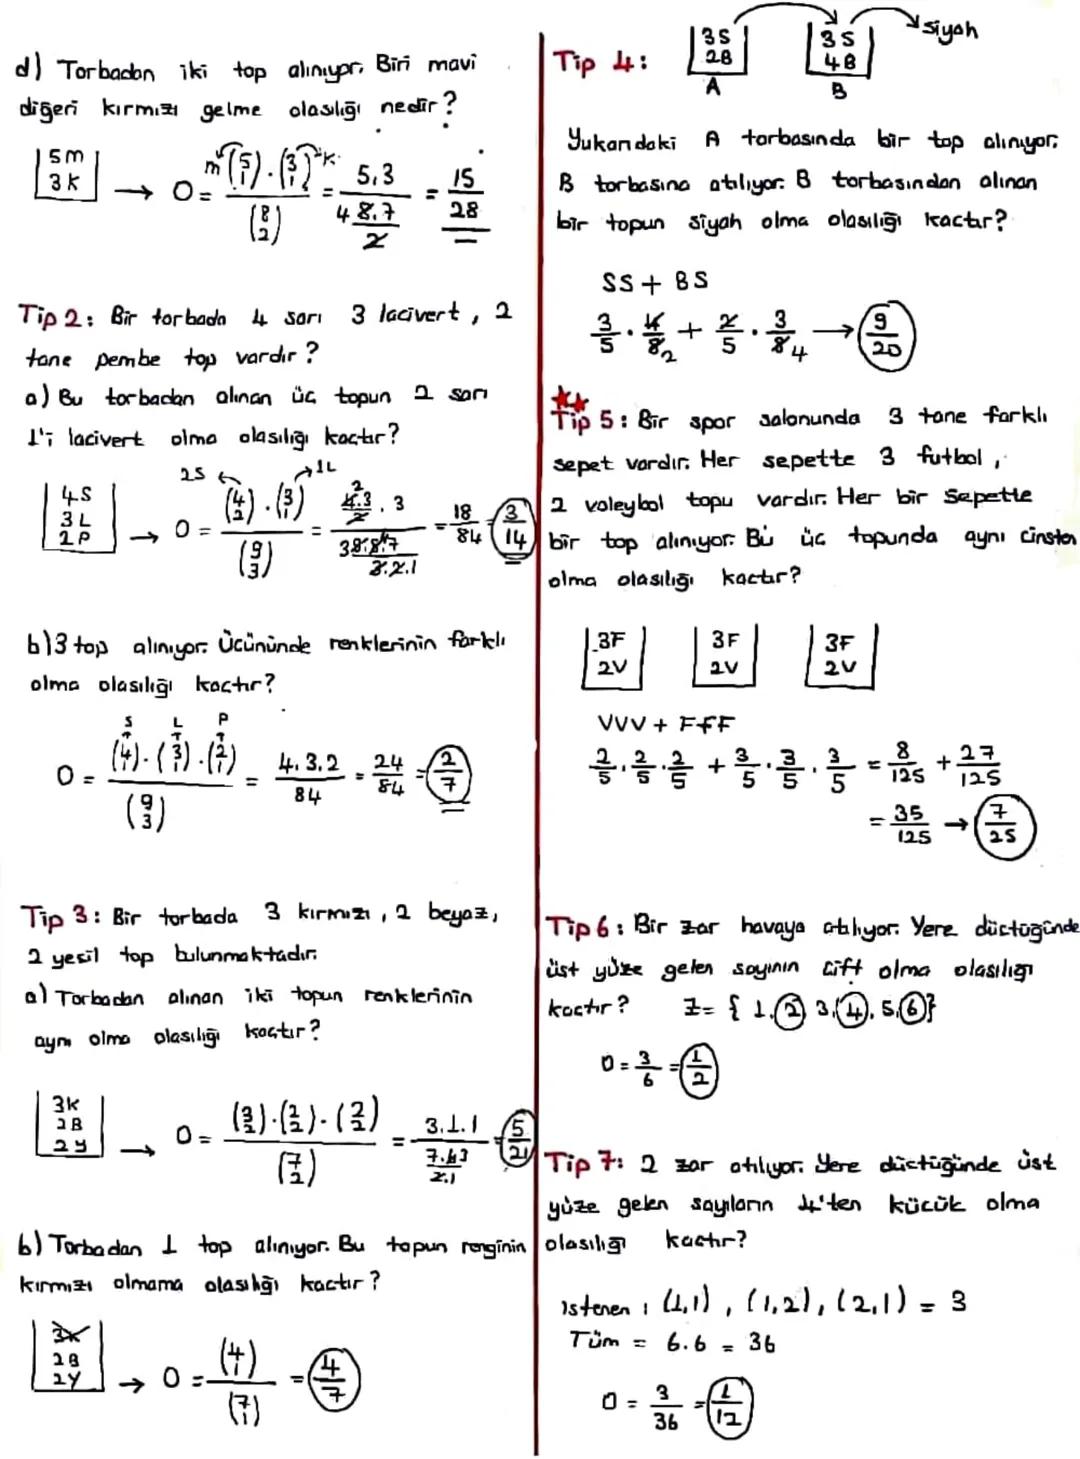 d) Torbadan iki top alınıyor. Biri mavi
diğeri kırmızı gelme olasılığı nedir?
5m
3K
→ O = m (5 1) . (3 1) K / (8 2) = 5.3 / 4 8.7 / 2 = 15/28
Tip 2: Bir torbada 4 sarı 3 lacivert, 2
tane pembe top vardır?
a) Bu torbadan alınan üç topun 2 sarı
1'i lacivert olma olasılığı kaçtır?
2S 1L
4S
3L
2P
→ O = (4 2) . (3 1) / (9 3) = 2 4.3 / 2 . 3 / 3 9.8.7 / 3.2.1 = 18/84 = 3/14
b) 3 top alınıyor. Üçününde renklerinin farklı
olma olasılığı kaçtır?
S L P
O = (4 1) . (3 1) . (2 1) / (9 3) = 4.3.2 / 84 = 24/84 = 2/7
Tip 3: Bir torbada 3 kırmızı, 2 beyaz,
2 yeşil top bulunmaktadır.
a) Torbadan alınan iki topun renklerinin
aynı olma olasılığı kaçtır?
3K
2B
2Y
→ O = (3 2) . (2 2) . (2 2) / (7 2) = 3.1.1 / 7.6 3 / 2.1 = 5/21
b) Torbadan 1 top alınıyor. Bu topun renginin
kırmızı olmama olasılığı kaçtır?
3K
2B
2Y
→ O = (4 1) / (7 1) = 4/7
Tip 4:
3S
2B
A
3S
4B
B
siyah
Yukarıdaki A torbasında bir top alınıyor.
B torbasına atılıyor. B torbasından alınan
bir topun siyah olma olasılığı kaçtır?
SS + BS
3/5 . 4/8 2 + 2/5 . 3/8 4 → 9/20
Tip 5: Bir spor salonunda 3 tane farklı
sepet vardır. Her sepette 3 futbol,
2 voleybol topu vardır. Her bir sepette
bir top alınıyor. Bu üç topunda aynı cinsten
olma olasılığı kaçtır?
3F 3F 3F
2V 2V 2V
VVV + FFF
2/5 . 2/5 . 2/5 + 3/5 . 3/5 . 3/5 = 8/125 + 27/125
= 35/125 → 7/25
Tip 6: Bir zar havaya atılıyor. Yere düştüğünde
üst yüze gelen sayının çift olma olasılığı
kaçtır? Z = { 1, 2, 3, 4, 5, 6 }
O = 3/6 = 1/2
Tip 7: 2 zar atılıyor. Yere düştüğünde üst
yüze gelen sayıların 4'ten küçük olma
olasılığı kaçtır?
İstenen : (1,1), (1,2), (2,1) = 3
Tüm = 6.6 = 36
O = 3/36 = 1/12